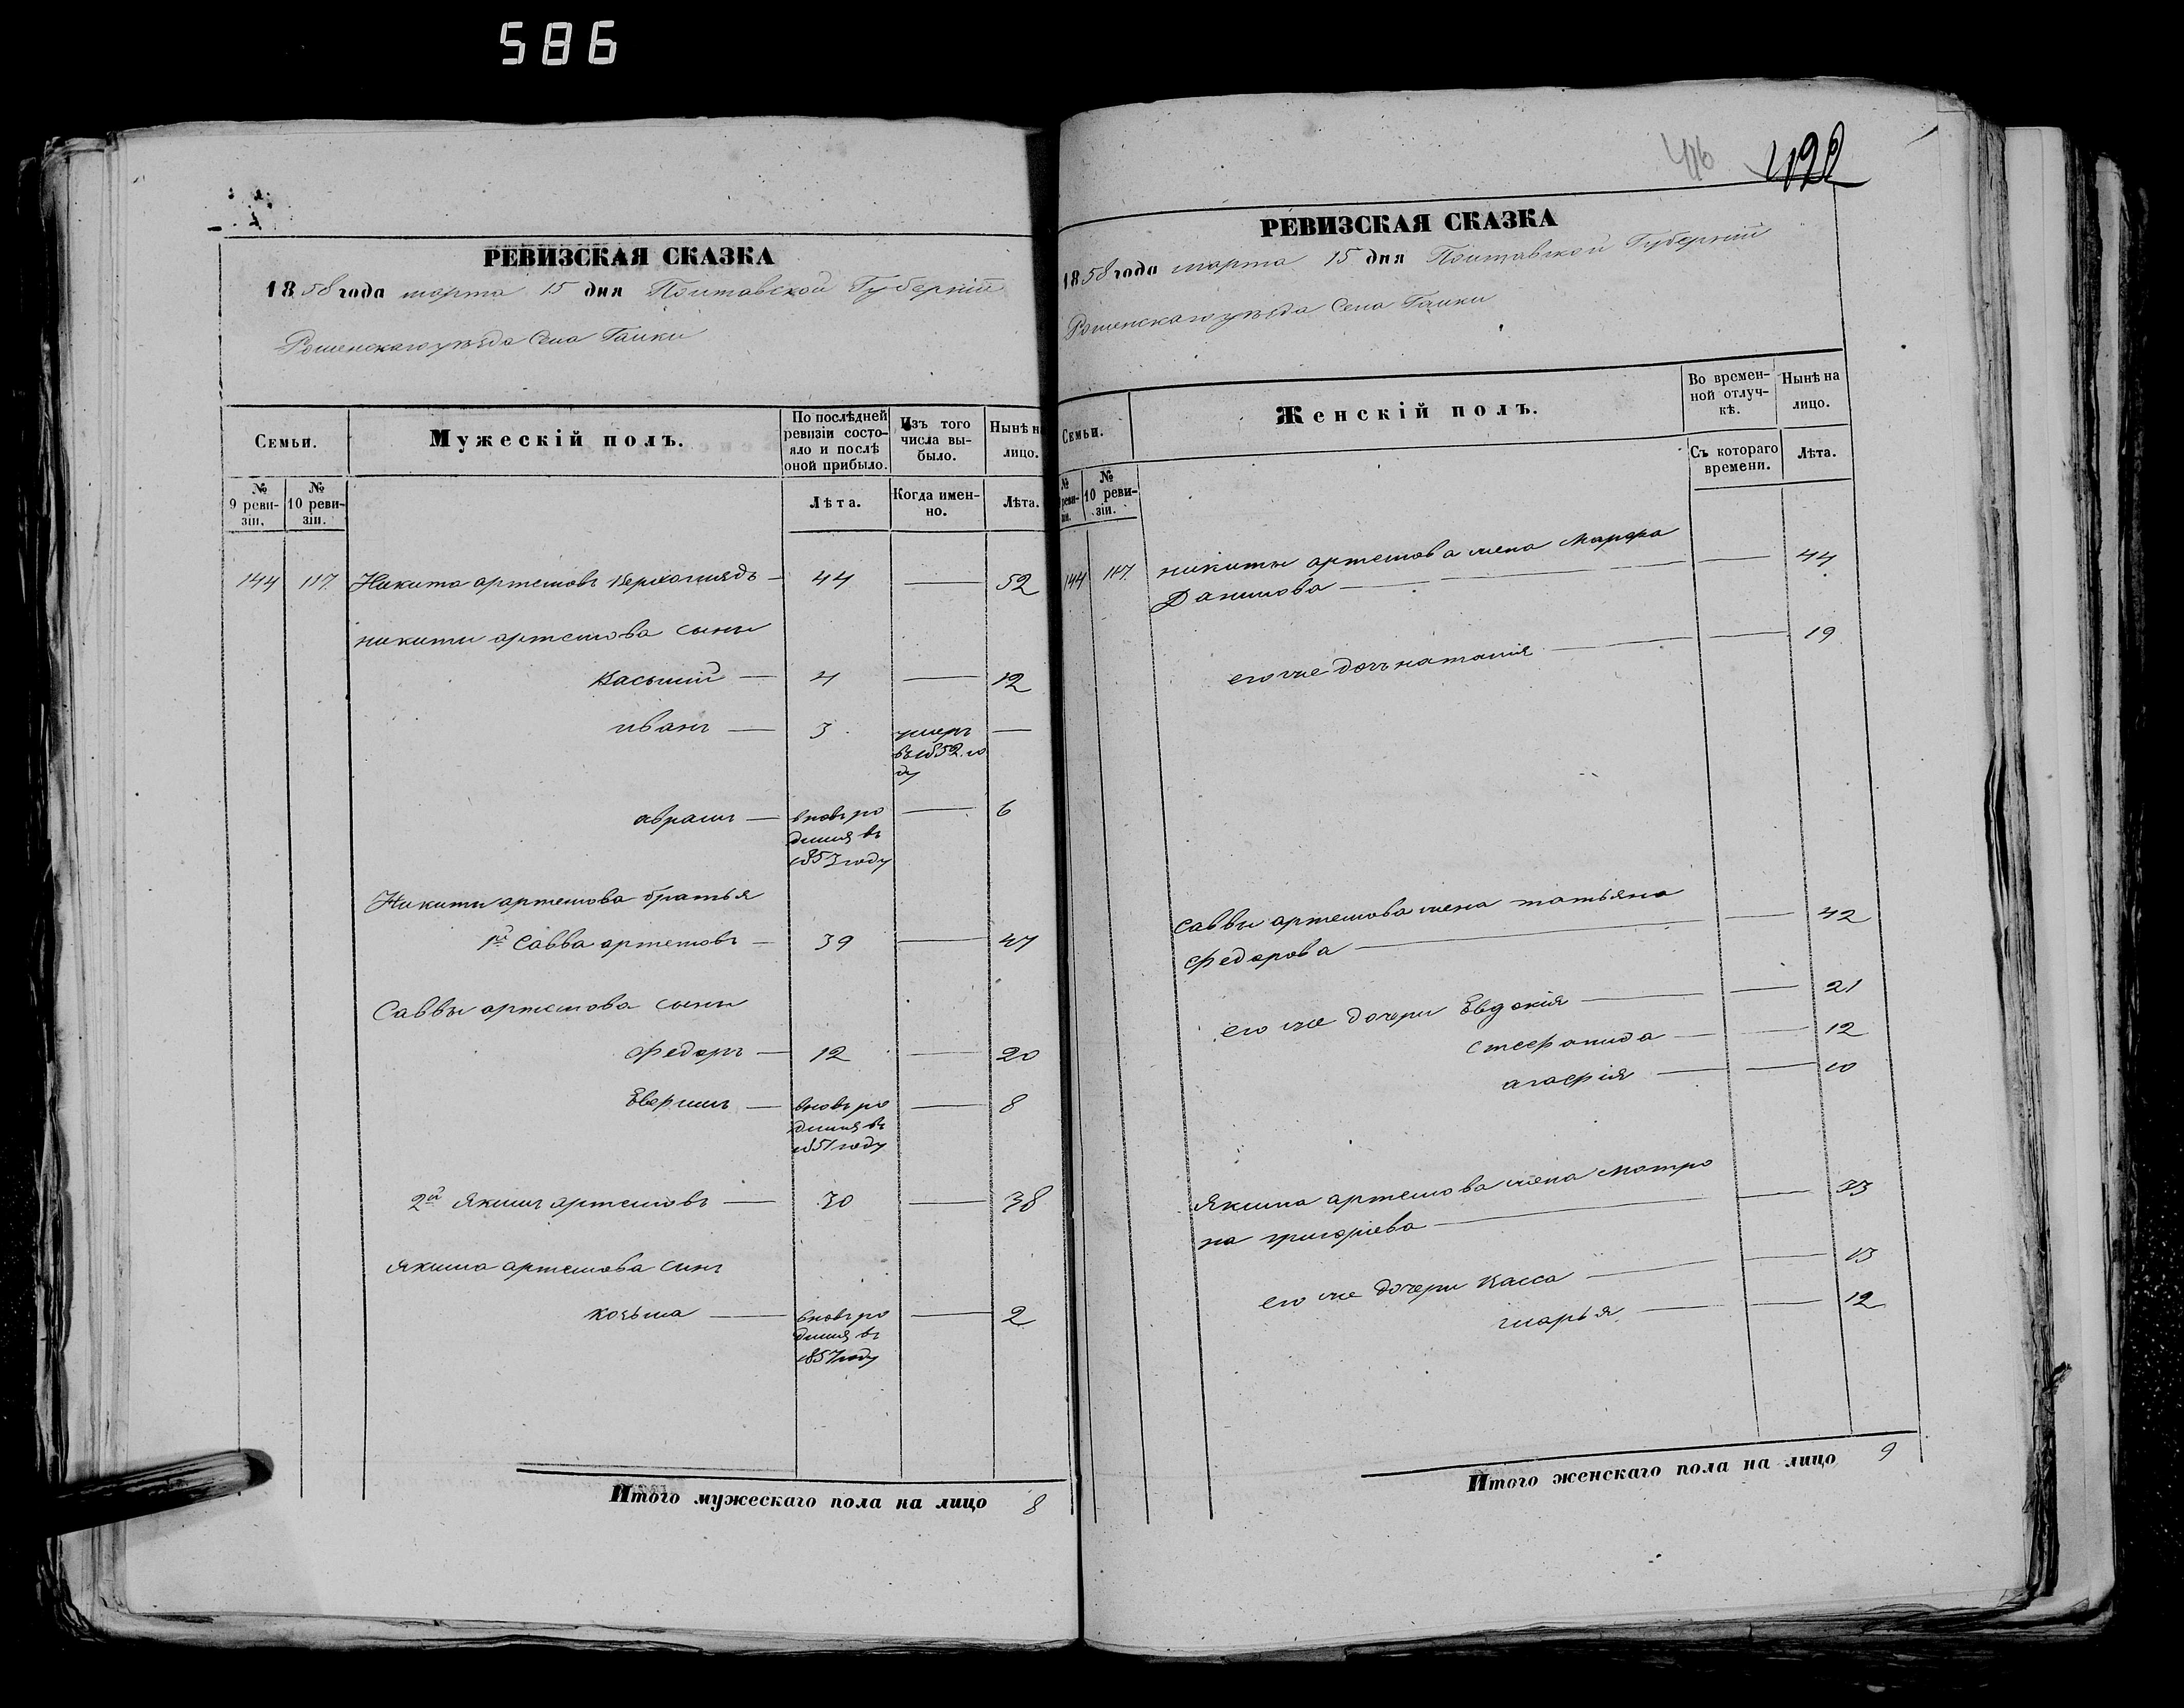 586
РЕВИЗСКАЯ СКАЗКА
1858 года марта 15 дня Полтавской Губерніи
Роменскаго уѣзда Села Галки
Семьи.
Мужескій полъ.
По послѣдней ревизіи состояло и послѣ оной прибыло.
Изъ того числа выбыло.
Нынѣ на лицо.
№ 9 ревизіи.
№ 10 ревизіи.
Лѣта.
Когда именно.
Лѣта.
144 117 Никита артемовъ — 44 — 52
никиты артемова сыны
Василий — 4 — 12
иванъ — 3 умеръ —
въ 1852 го
ду
аврамъ — вновь ро — 6
дился въ
1853 году
Никиты артемова братья
1й Савва артемовъ — 39 — 47
Саввы артемова сыны
Федоръ — 12 — 20
— вновь ро — 8
дился въ
1851 году
2й Якимъ артемовъ — 30 — 38
Якима артемова сынъ
козьма — вновь ро — 2
дился въ
1857 году
Итого мужескаго пола на лицо 8
416 422
РЕВИЗСКАЯ СКАЗКА
1858 года марта 15 дня Полтавской Губерніи
Роменскаго уѣзда Села Галки
Семьи.
Женскій полъ.
Во временной отлучкѣ.
Нынѣ на лицо.
№ 9 ревизіи.
№ 10 ревизіи.
Съ котораго времени.
Лѣта.
144 117 никиты артемова жена Марфа
Данилова — — 44
его же дочь наталія — — 19
Саввы артемова жена татьяна
Федорова — — 42
его же дочери Евдокія — — 21
Стефанида — — 12
агафія — — 10
Якима артемова жена Мотро
на григорьева — — 33
его же дочери Васса — — 13
марья — — 12
Итого женскаго пола на лицо 9